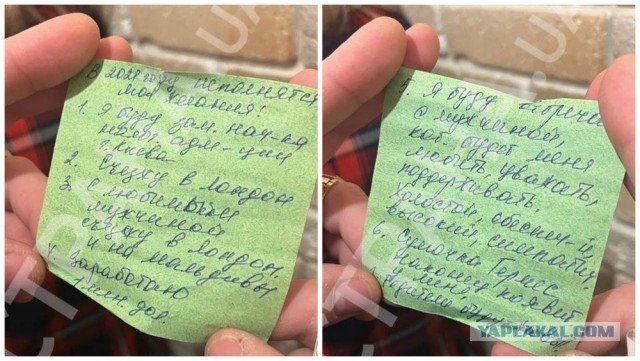 В 2021 году исполнятся
мои желания!
1. Я буду зам. нач-ка
адм-ции
г. Киева
2. Съезжу в Лондон
3. С любимым
мужчиной
съезжу в Лондон
и на мальдивы
4. Заработаю
1 млн. дол.
5. Я буду
с мужчиной,
кот. будет меня
любить, уважать,
поддерживать.
Холостой, обеспеч-й
высокий,
6. Сумочка Гермес
у меня
YAPLAKAL.COM